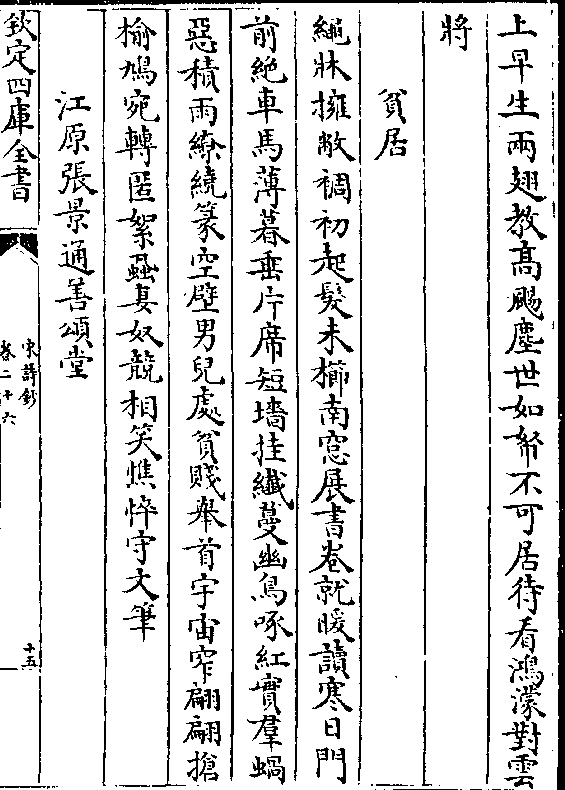 上早生兩翅教高颺塵世如帑不可居待看鴻濛對雲
將
貧居
繩牀擁敝裯初起髮未櫛南窓展書卷就暖讀寒日門
前絶車馬薄暮垂片席短墻挂纖蔓幽鳥啄紅實羣蝸
惡積雨繚繞篆空壁男兒處貧賤舉首宇宙窄翩翩搶
榆鳩宛轉匿絮蝨妻奴競相笑憔悴守文筆
江原張景通善頌堂
欽定四庫全書
宋詩鈔
卷二十六
十五